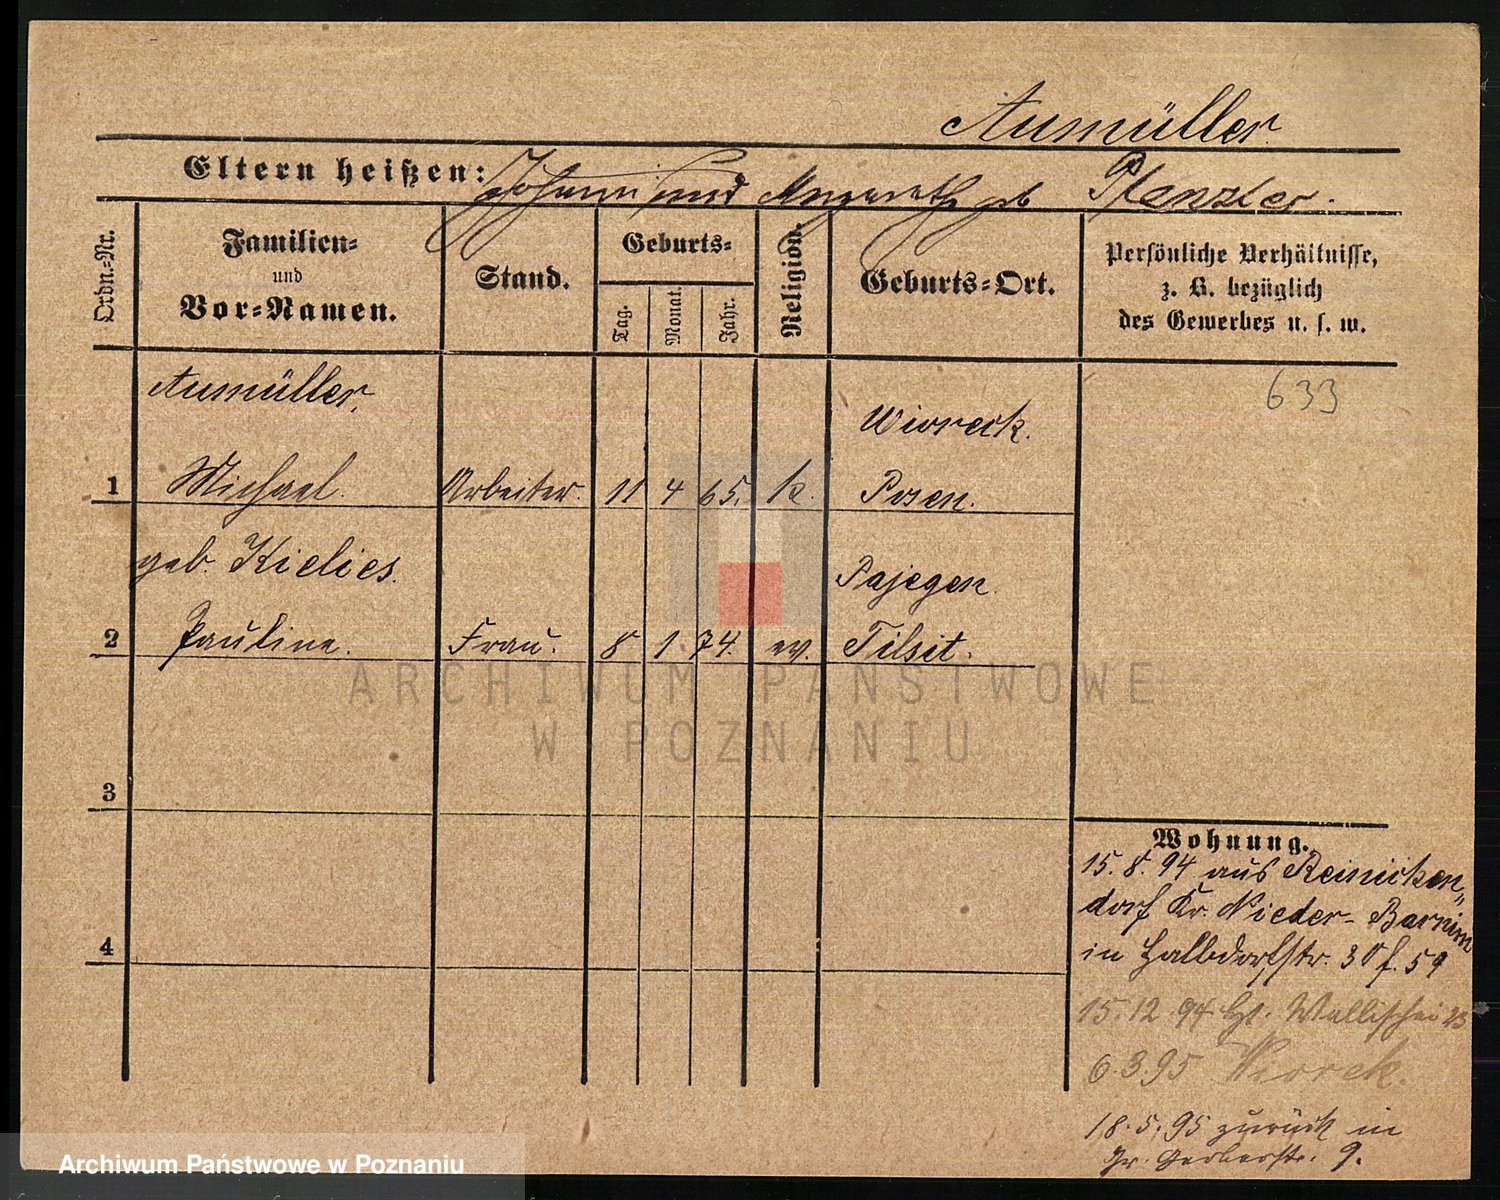 Aumüller.
Eltern heißen: Johann und Margarethe geb Pfenzler.
Ordn.=Nr.
Familien=
und
Vor=Namen.
Stand.
Geburts=
Tag.
Monat.
Jahr.
Religion.
Geburts=Ort.
Persönliche Verhältnisse,
z. B. bezüglich
des Gewerbes u. s. w.
633
Aumüller,
Wioreck.
1 Michael. Arbeiter. 11 4 65. k. Posen.
geb. Kielies.
Pajegen.
2 Pauline. Frau. 8 1 74. ev. Tilsit.
ARCHIWUM PAŃSTWOWE
W POZNANIU
3
4
Wohnung.
15. 8. 94 aus Reinicken„
dorf Kr. Nieder-Barnim
in Halbdorfstr. 30 f. 59
15. 12. 94 Wallischei
6. 3. 95 Wiorek.
18. 5. 95 zurück in
Gr. Gerberstr. 9.
Archiwum Państwowe w Poznaniu